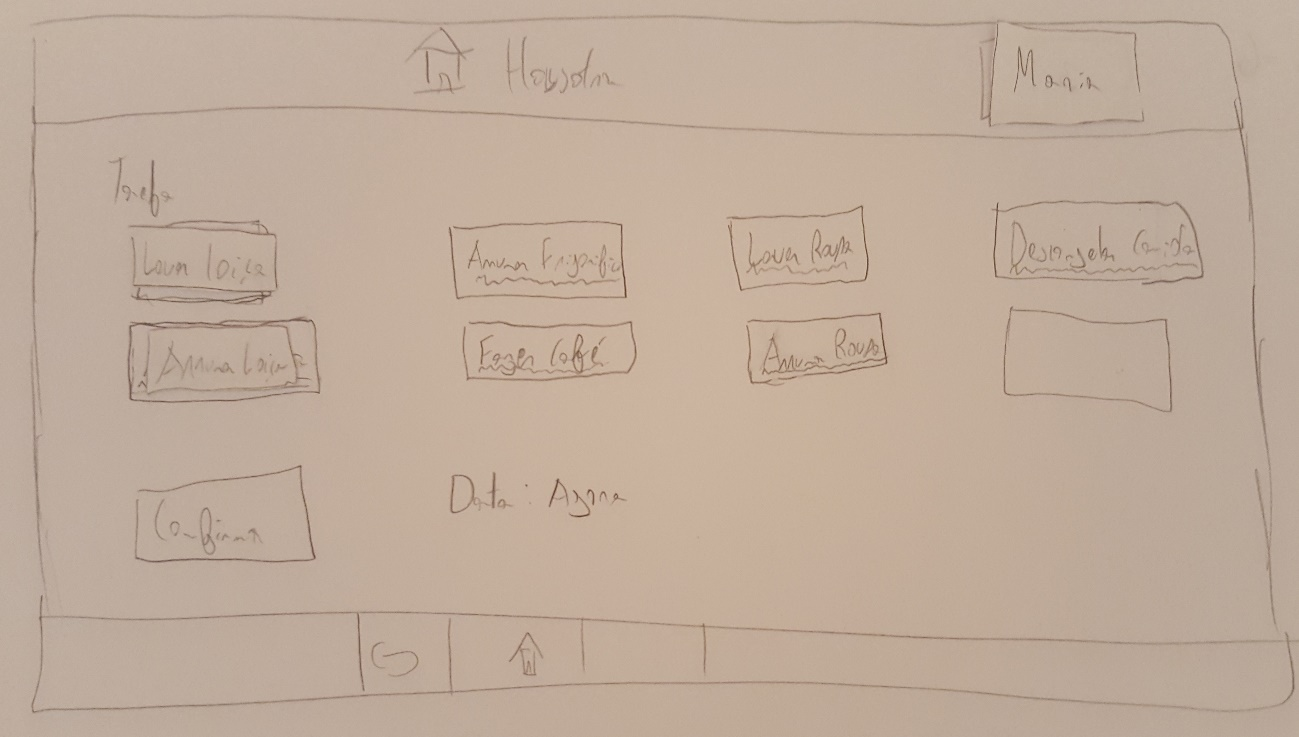 Maria
Tarefa
Lavar Loiça Arrumar Frigorífic Lavar Roupa Descongelar Comida
Arrumar Loiça Fazer Café Arrumar Roupa
Confirmar Data: Agora